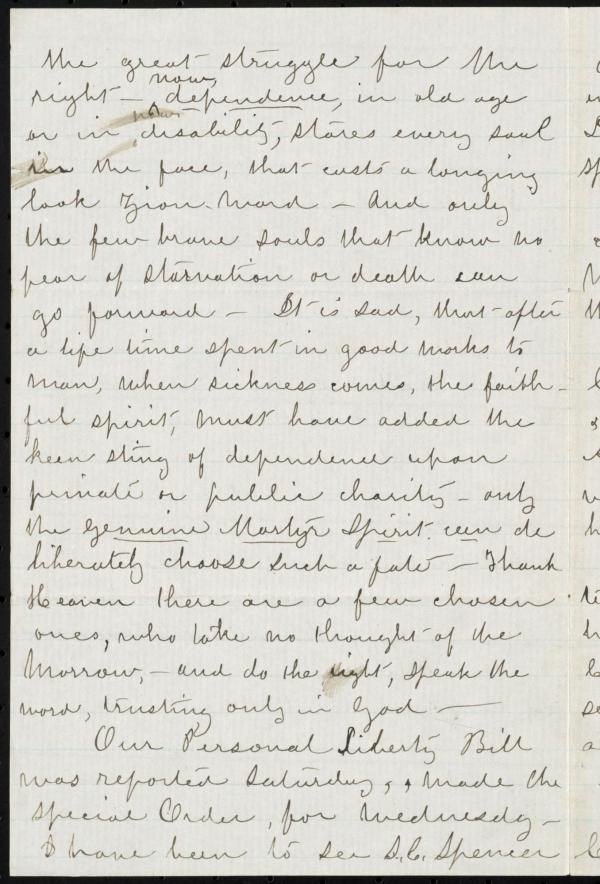 the great struggle for the
now,
right – dependence, in old age
or in disability, stares every soul
in the face, that casts a longing
look Zion-ward – And only
the few brave souls that know no
fear of starvation or death can
go forward – It is sad, that after
a life time spent in good works to
man, when sickness comes, the faith-
ful spirit, must have added the
keen sting of dependence upon
private or public charity – only
the genuine Martyr Spirit can de
liberately choose such a fate – Thank
Heaven there are a few chosen
ones, who take no thought of the
Morrow, – and do the right, speak the
word, trusting only in God —
Our Personal Liberty Bill
was reported Saturday, , made the
special Order, for Wednesday –
I have been to see S.C. Spencer